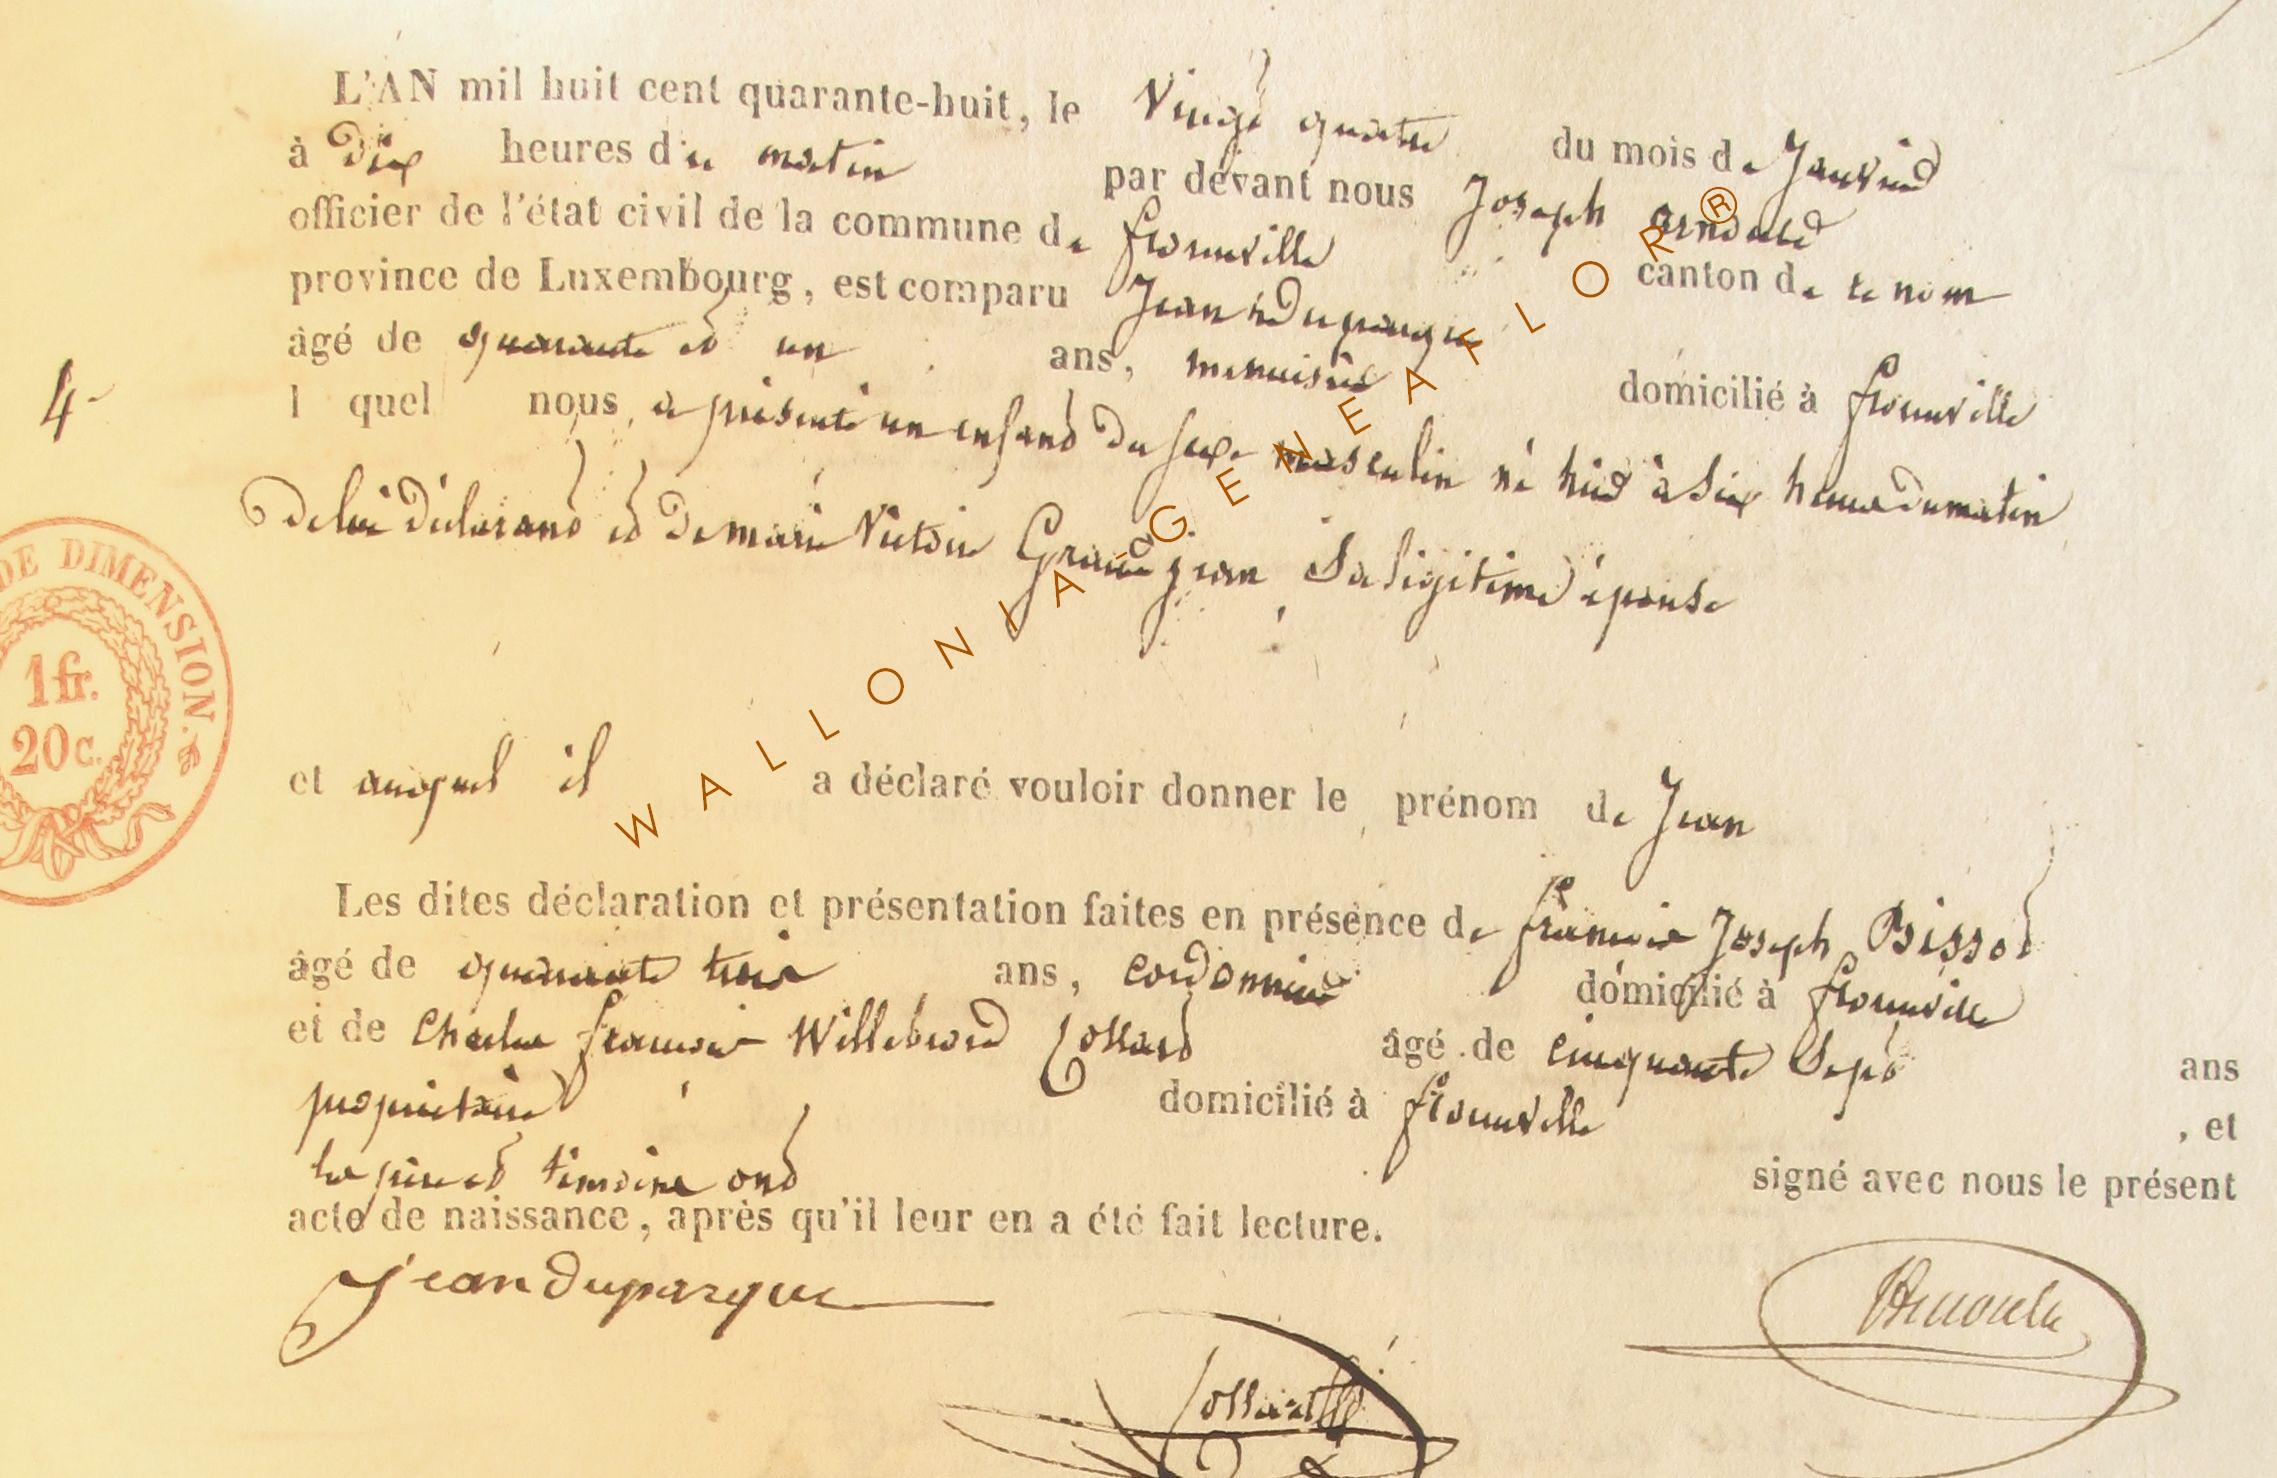 L'AN mil huit cent quarante-huit, le Vingt quatre du mois de Janvier
à Dix heures du matin par devant nous Joseph Arnould
officier de l'état civil de la commune de florenville canton de ce nom
province de Luxembourg, est comparu Jean Duparque
âgé de quarante et un ans, menuisier domicilié à florenville
4
l quel nous a présenté un enfant du sexe masculin né hier à Six heures du matin
De lui Déclarant et De marie Victoire Grandjean Sa légitime épouse
DE DIMENSION.
1fr.
20c.
et auquel il a déclaré vouloir donner le prénom de Jean
Les dites déclaration et présentation faites en présence de françois Joseph Bissot
âgé de quarante trois ans, cordonnier domicilié à florenville
et de Charles françois Willebrord Collard âgé de cinquante Sept ans
propriétaire domicilié à florenville , et
les père et témoins ont signé avec nous le présent
acte de naissance, après qu'il leur en a été fait lecture.
Jean Duparque
Collard
WALLONIA-GENEAFLOR®